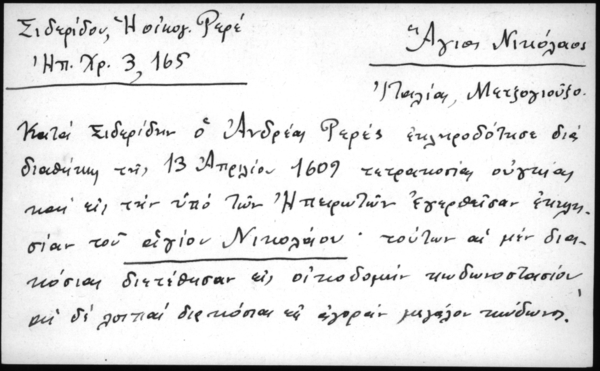 Σιδερίδου, Ἡ οἰκογ. Ρερέ
Ἠπ. Χρ. 3, 165
Ἅγιος Νικόλαος
Ἰταλίας, Μετζογιοῦζο.
Κατά Σιδερίδην ὁ Ἀνδρέας Ρερές ἐκληροδότησε διά
διαθήκης τῆς 13 Ἀπριλίου 1609 τετρακοσίας οὐγκίας
καί εἰς τήν ὑπό τῶν Ἠπειρωτῶν ἐγερθεῖσαν ἐκκλη-
σίαν τοῦ ἁγίου Νικολάου· τούτων αἱ μέν δια-
κόσιαι διετέθησαν εἰς οἰκοδομήν κωδωνοστασίου
αἱ δέ λοιπαί διακόσιαι εἰς ἀγοράν μεγάλου κώδωνος.